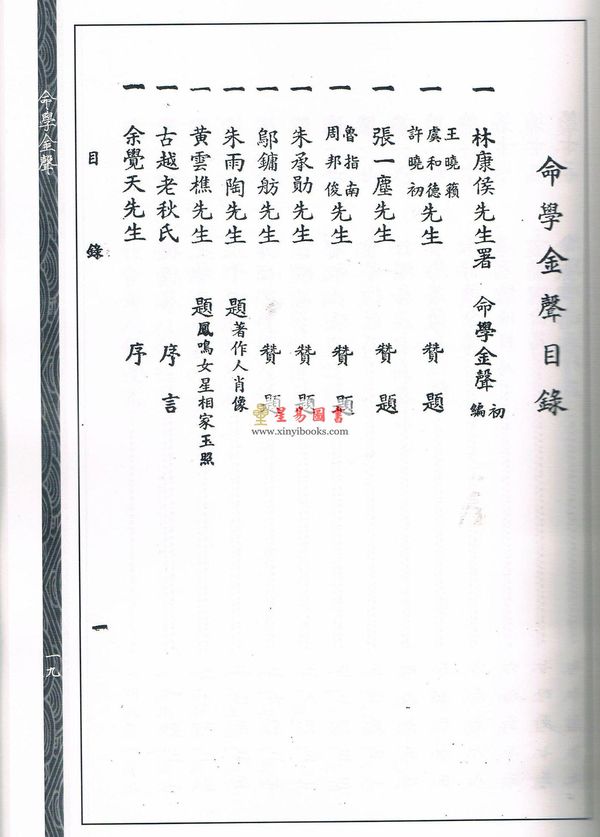 命學金聲目錄
一 林康侯先生署 命學金聲初編
一 王曉籟 虞和德 許曉初 先生 贊題
一 張一塵先生 贊題
一 魯指南 周邦俊 先生 贊題
一 朱承勛先生 贊題
一 鄔鏞舫先生 贊題
一 朱雨陶先生 題著作人肖像
一 黃雲樵先生 題鳳鳴女星相家玉照
一 古越老秋氏 序言
一 余覺天先生 序
目錄 一
命學金聲 一九
星易圖書
www.xinyibooks.com